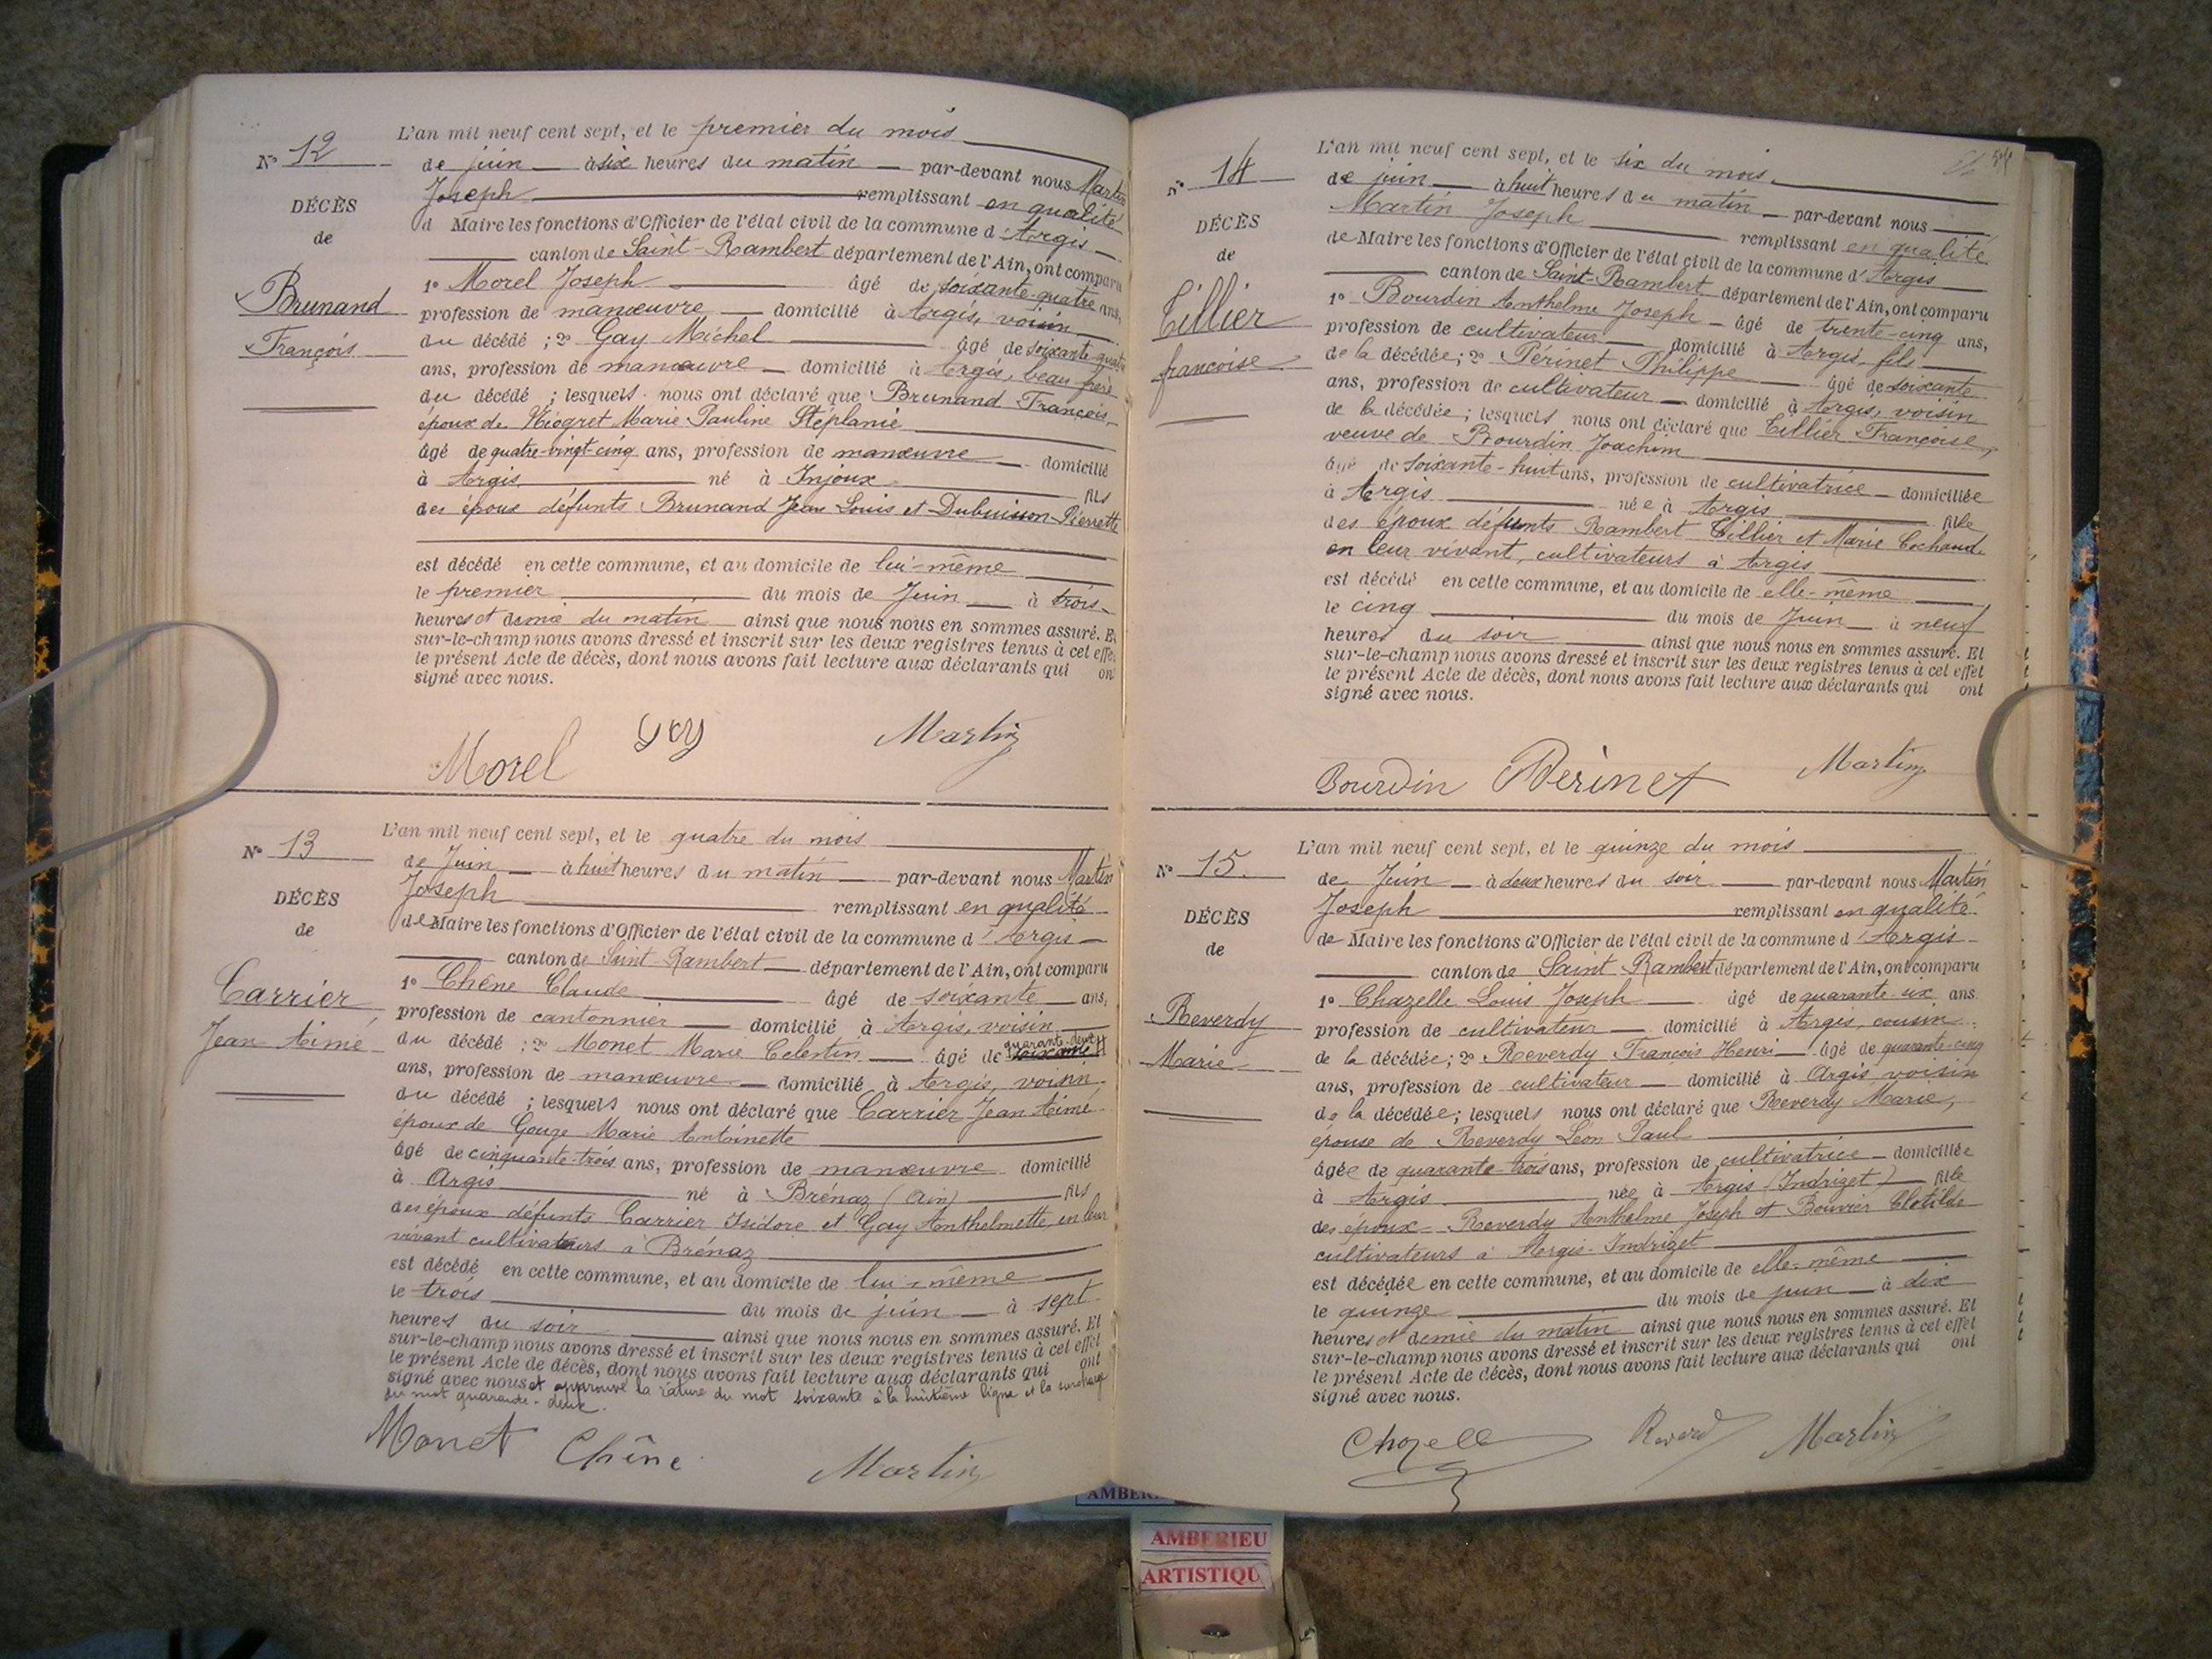 L'an mil neuf cent sept, et le premier du mois
N° 12
de juin à six heures du matin par-devant nous Martin
Joseph remplissant en qualité
DÉCÈS
d Maire les fonctions d'Officier de l'état civil de la commune d'Argis
de
canton de Saint-Rambert département de l'Ain, ont comparu
Brunand
François
1° Morel Joseph âgé de soixante-quatre ans,
profession de manœuvre domicilié à Argis, voisin
du décédé ; 2° Gay Michel âgé de soixante-quatre
ans, profession de manœuvre domicilié à Argis, beau frère
du décédé ; lesquels nous ont déclaré que Brunand François,
époux de Marie Pauline Stéplanie
âgé de quatre-vingt-cinq ans, profession de manœuvre domicilié
à Argis né à Injoux fils
des époux défunts Brunand Jean Louis et Dubuisson Pierrette
est décédé en cette commune, et au domicile de lui-même
le premier du mois de Juin à trois
heures et demie du matin ainsi que nous nous en sommes assuré. Et
sur-le-champ nous avons dressé et inscrit sur les deux registres tenus à cet effet
le présent Acte de décès, dont nous avons fait lecture aux déclarants qui ont
signé avec nous.
Morel Gay Martin
L'an mil neuf cent sept, et le quatre du mois
N° 13
de Juin à huit heures du matin par-devant nous Martin
Joseph remplissant en qualité
DÉCÈS
de Maire les fonctions d'Officier de l'état civil de la commune d'Argis
de
canton de Saint Rambert département de l'Ain, ont comparu
Carrier
Jean Aimé
1° Chêne Claude âgé de soixante ans,
profession de cantonnier domicilié à Argis, voisin
du décédé ; 2° Monet Marie Celestin âgé de soixante quarante-deux
ans, profession de manœuvre domicilié à Argis, voisin
du décédé ; lesquels nous ont déclaré que Carrier Jean Aimé
époux de Gouge Marie Antoinette
âgé de cinquante-trois ans, profession de manœuvre domicilié
à Argis né à Brénaz (Ain) fils
des époux défunts Carrier Isidore et Gay Anthelmette, en leur
vivant cultivateurs à Brénaz
est décédé en cette commune, et au domicile de lui-même
le trois du mois de juin à sept
heures du soir ainsi que nous nous en sommes assuré. Et
sur-le-champ nous avons dressé et inscrit sur les deux registres tenus à cet effet
le présent Acte de décès, dont nous avons fait lecture aux déclarants qui ont
signé avec nous et approuvé la rature du mot soixante à la huitième ligne et la surcharge
du mot quarante-deux.
Monet Chêne Martin
L'an mil neuf cent sept, et le six du mois
N° 14
de juin à huit heures du matin par-devant nous
Martin Joseph remplissant en qualité
DÉCÈS
de Maire les fonctions d'Officier de l'état civil de la commune d'Argis
de
canton de Saint-Rambert département de l'Ain, ont comparu
Tillier
francoise
1° Bourdin Anthelme Joseph âgé de trente-cinq ans,
profession de cultivateur domicilié à Argis, fils
de la décédée ; 2° Périnet Philippe âgé de soixante
ans, profession de cultivateur domicilié à Argis, voisin
de la décédée ; lesquels nous ont déclaré que Tillier Françoise
veuve de Bourdin Joachim
âgé de soixante-huit ans, profession de cultivatrice domiciliée
à Argis née à Argis fille
des époux défunts Rambert Tillier et Marie Cochand
en leur vivant, cultivateurs à Argis
est décédé en cette commune, et au domicile de elle-même
le cinq du mois de Juin à neuf
heures du soir ainsi que nous nous en sommes assuré. Et
sur-le-champ nous avons dressé et inscrit sur les deux registres tenus à cet effet
le présent Acte de décès, dont nous avons fait lecture aux déclarants qui ont
signé avec nous.
Bourdin Périnet Martin
L'an mil neuf cent sept, et le quinze du mois
N° 15.
de Juin à deux heures du soir par-devant nous Martin
Joseph remplissant en qualité
DÉCÈS
de Maire les fonctions d'Officier de l'état civil de la commune d'Argis
de
canton de Saint Rambert département de l'Ain, ont comparu
Reverdy
Marie
1° Chazelle Louis Joseph âgé de quarante-six ans
profession de cultivateur domicilié à Argis, cousin
de la décédée ; 2° Reverdy François Henri âgé de quarante-cinq
ans, profession de cultivateur domicilié à Argis voisin
de la décédée ; lesquels nous ont déclaré que Reverdy Marie,
épouse de Reverdy Léon Paul
âgée de quarante-trois ans, profession de cultivatrice domiciliée
à Argis née à Argis (Indrizet) fille
des époux Reverdy Anthelme Joseph et Bouvier Clotilde
cultivateurs à Argis-Indrizet
est décédée en cette commune, et au domicile de elle-même
le quinze du mois de juin à dix
heures et demie du matin ainsi que nous nous en sommes assuré. Et
sur-le-champ nous avons dressé et inscrit sur les deux registres tenus à cet effet
le présent Acte de décès, dont nous avons fait lecture aux déclarants qui ont
signé avec nous.
Chazelle Martin
AMBERIEU
ARTISTIQU